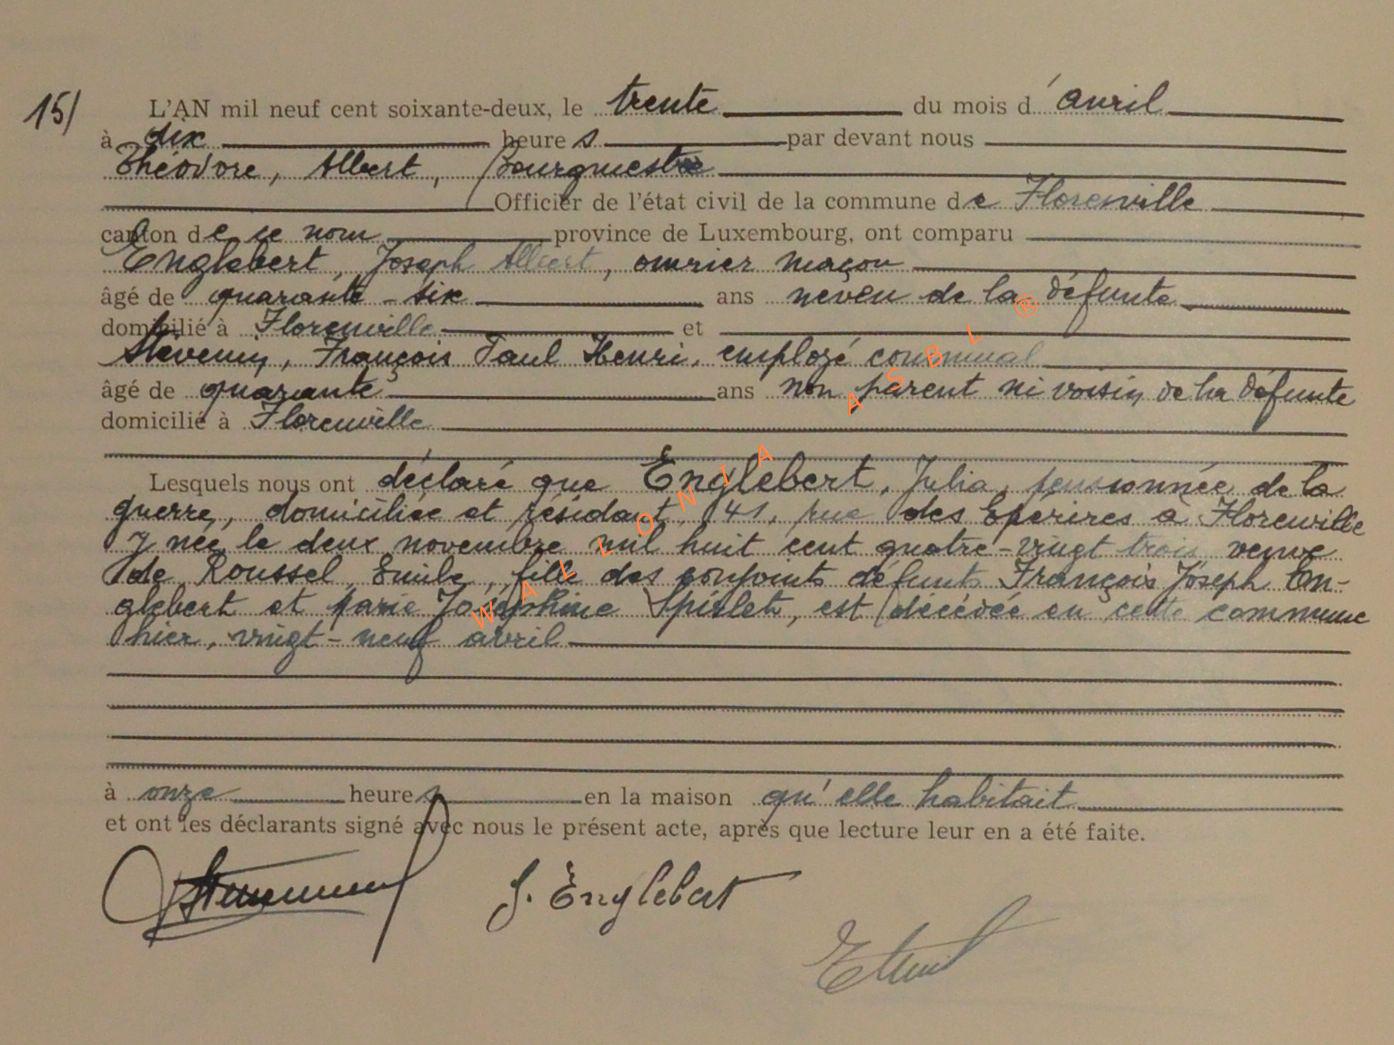 15/ L'AN mil neuf cent soixante-deux, le trente du mois d'avril
à dix heures par devant nous
Théodore, Albert, Bourgmestre
Officier de l'état civil de la commune de Florenville
canton de ce nom province de Luxembourg, ont comparu
Englebert, Joseph Albert, ouvrier maçon
âgé de quarante-six ans neveu de la défunte
domicilié à Florenville et
Stévenin, François Paul Henri, employé communal
âgé de quarante ans non parent ni voisin de la défunte
domicilié à Florenville
Lesquels nous ont déclaré que Englebert, Julia, pensionnée de la
guerre, domiciliée et résidant, 41, rue des Epérires à Florenville
y née le deux novembre mil huit cent quatre-vingt trois veuve
de Roussel, Emile, fille des conjoints défunts François Joseph En-
glebert et Marie Joséphine Spirlet, est décédée en cette commune
hier, vingt-neuf avril
à onze heures en la maison qu'elle habitait
et ont les déclarants signé avec nous le présent acte, après que lecture leur en a été faite.
J. Englebert
WALLONIA ASBL ®